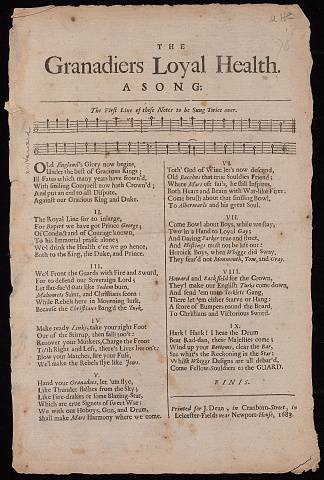 THE
Granadiers Loyal Health.
A SONG:
The First Line of these Notes to be Sung Twice over.
OLd England's Glory now begins,
Under the best of Gracious Kings;
Ill Fates which many years have frown'd,
With smiling Conquest now hath Crown'd;
And put an end to all Dispute,
Against our Gracious King and Duke.
II.
The Royal Line for to inlarge,
For Rupert we have got Prince George;
Of Conduct and of Courage known,
To his Immortal praise alone;
We'l drink the Health e're we go hence,
Both to the King, the Duke, and Prince.
III.
We'l Front the Guards with Fire and Sword,
For to defend our Sovereign Lord;
Let Bastard Guns like burn,
Mahomets Saint, and Christians scorn
While Rebels here in Morning lurk,
Because the Christians Bang'd the Turk.
IV.
Make ready Links, take your right Foot
Out of the Stirrup, then fall to't:
Recover your Muskets, Charge the Front
To th' Right and Left, there's Links lies on't:
Blow your Matches, fire your Fuse,
We'l make the Rebels flye like Jews.
V.
Hand your Granadoes, let 'um flye,
Like Thunder flashes from the Sky;
Like Fire-drakes or some blazing-Star,
Which are true Signets of sweet War:
We with our Hoboys, Gun, and Drum,
Shall make Mars Harmony where we come.
VI.
Toth' God of Wine let's now descend,
Old Bacchus that true Souldiers Friend;
Where Mars oft fails, he still Inspires,
Both Heart and Brain with War-like Fires:
Come brush about that smiling Bowl,
To Albermarle and his great Soul.
VII.
Come Bowl about Boys, while we stay,
Two in a Hand to Loyal Guy;
And Daring Parker true and stout,
And Hastings must not be left out:
Heroick Boys, when Whigge did sway,
They fear'd not Monmouth, Tow, and Gray.
VIII.
Howard and Sackfield for the Crown,
They'l make our English Turks come down,
And send 'em unto Teckelys Gang,
There let 'em either Starve or Hang:
A score of Bumpers round the Board,
To Christians and Victorious Sword.
IX.
Hark! Hark! I hear the Drum
Beat Rad-dan, their Majesties come;
Wind up your Bottoms, clear the Bar,
See what's the Reckoning in the Star:
Whilst Whigge Designs are all debar'd,
Come Fellow-Souldiers to the GUARD.
FINIS.
Printed for J. Dean, in Cranborn-Street, in
Leicester-Fields near Newport-House, 1683.